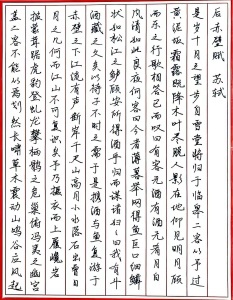 后赤壁赋 苏轼
是岁十月之望步自雪堂将归于临皋二客从予过
黄泥坂霜露既降木叶尽脱人影在地仰见明月顾
而乐之行歌相答已而叹曰有客无酒有酒无肴月白
风清如此良夜何客曰今者薄暮举网得鱼巨口细鳞
状如松江之鲈顾安所得酒乎归而谋诸妇々曰我有斗
酒藏之久矣以待子不时之需于是携酒与鱼复游于
赤壁之下江流有声断岸千尺山高月小水落石出曾日
月之几何而江山不可复识矣予乃摄衣而上履巉岩
披蒙茸踞虎豹登虬龙攀栖鹘之危巢俯冯夷之幽宫
盖二客不能从焉划然长啸草木震动山鸣谷应风起